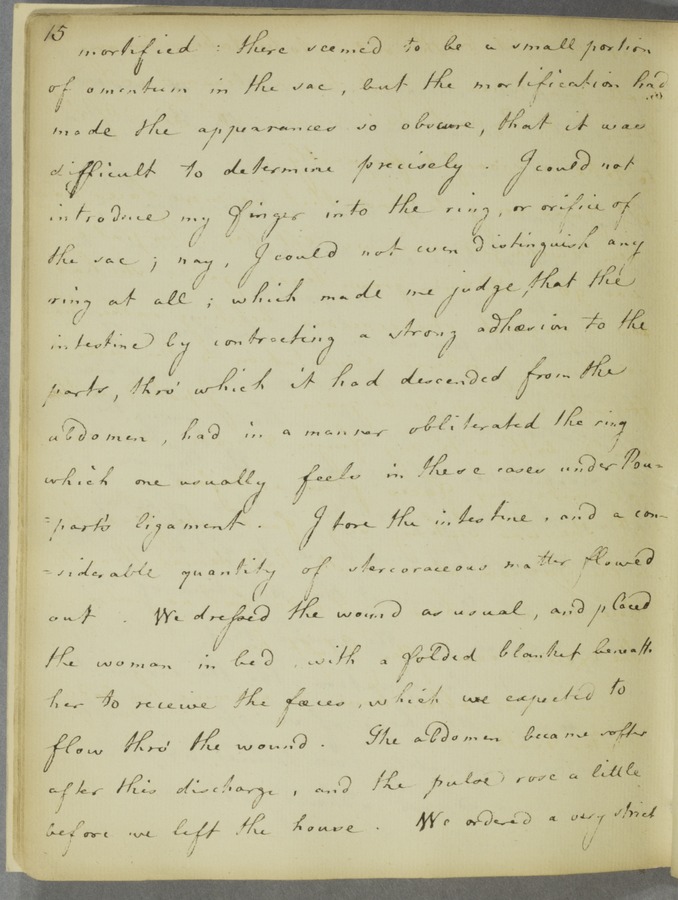 15
mortified : there seemed to be a small portion
of omentum in the sac, but the mortification had
made the appearances so obscure, that it was
difficult to determine precisely . I could not
introduce my finger into the ring, or orifice of
the sac ; nay, I could not even distinguish any
ring at all ; which made me judge, that the
intestine by contracting a strong adhæsion to the
parts, thro' which it had descended from the
abdomen, had in a manner obliterated the ring
which one usually feels in these cases under Pou=
=part's ligament . I tore the intestine, and a con=
=siderable quantity of stercoraceous matter flowed
out . We dressed the wound as usual, and placed
the woman in bed, with a folded blanket beneath
her to receive the fæces, which we expected to
flow thro' the wound . The abdomen became softer
after this discharge, and the pulse rose a little
before we left the house . We ordered a very strict